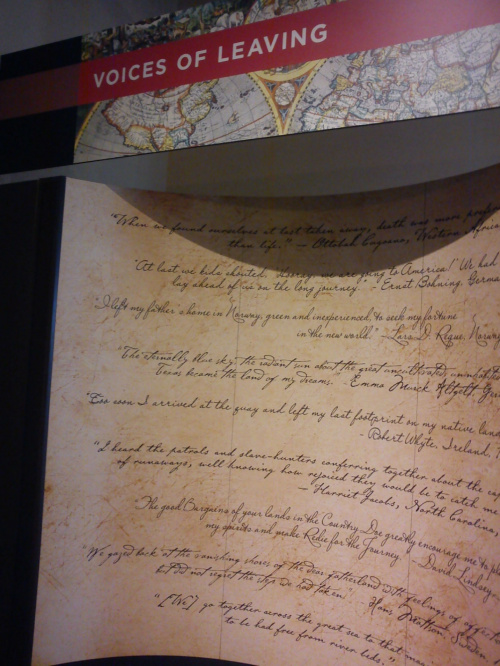 VOICES OF LEAVING
"When we found ourselves at last taken away, death was more
than life." – Ottobah Cugoano, Western
"At last we kids shouted, 'Hooray, we are going to America!' We had
lay ahead of us on the long journey." – Ernst Bohning,
"I left my father's home in Norway, green and inexperienced, to seek my fortune
in the new world." –
"The eternally blue sky, the radiant sun about the great uncultivated,
Texas became the land of my dreams." – Emma Murck Altgelt,
"Too soon I arrived at the quay and left my last footprint on my native
– Robert Whyte, Ireland,
"I heard the patrols and slave-hunters conferring together about the
of runaways, well knowing how rejoiced they would be to catch me
– Harriet Jacobs, North Carolina,
The good Bargains of your lands in the Country Doe greatly encourage me to
my spirits and make Redie for the Journey. – David Lindsey,
We gazed back at the vanishing shores of the dear fatherland with feelings of
but did not regret the step we had taken." – Hans Mattson, Sweden
"[We] go together across the great sea to that
to be had free from river